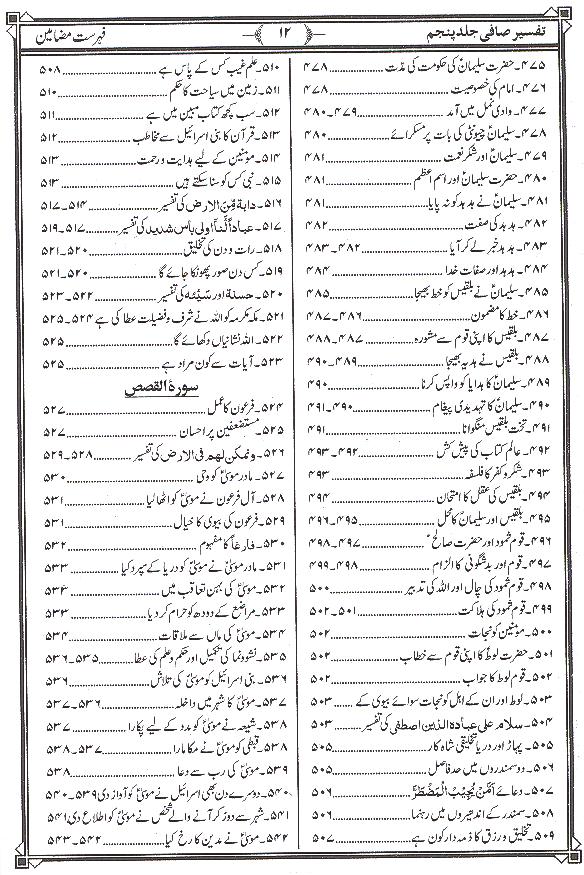 تفسیر صافی جلد پنجم
۱۲
فہرست مضامین
۴۷۵۔ حضرت سلیمانؑ کی حکومت کی مدّت ۴۷۸
۴۷۶۔ امام کی خصوصیت ۴۷۸
۴۷۷۔ وادیِ نمل میں آمد ۴۷۹۔۴۸۰
۴۷۸۔ سلیمانؑ چیونٹی کی بات پر مسکرائے ۴۸۰
۴۷۹۔ سلیمانؑ اور شکرِ نعمت ۴۸۱
۴۸۰۔ حضرت سلیمانؑ اور اسم اعظم ۴۸۱
۴۸۱۔ سلیمانؑ نے ہدہد کو نہ پایا ۴۸۱
۴۸۲۔ ہدہد کی صفت ۴۸۲
۴۸۳۔ ہدہد خبر لے کر آیا ۴۸۲۔۴۸۳
۴۸۴۔ ہدہد اور صفاتِ خدا ۴۸۴
۴۸۵۔ سلیمانؑ نے بلقیس کو خط بھیجا ۴۸۵
۴۸۶۔ خط کا مضمون ۴۸۶۔۴۸۷
۴۸۷۔ بلقیس کا اپنی قوم سے مشورہ ۴۸۷۔۴۸۸
۴۸۸۔ بلقیس نے ہدیہ بھیجا ۴۸۹۔۴۹۰
۴۸۹۔ سلیمانؑ کا ہدایا کو واپس کرنا ۴۹۰
۴۹۰۔ سلیمانؑ کا تہدیدی پیغام ۴۹۰۔۴۹۱
۴۹۱۔ تخت بلقیس منگوانا ۴۹۱
۴۹۲۔ عالمِ کتاب کی پیش کش ۴۹۲۔۴۹۳
۴۹۳۔ شکر و کفر کا فلسفہ ۴۹۳
۴۹۴۔ بلقیس کی عقل کا امتحان ۴۹۴
۴۹۵۔ بلقیس اور سلیمانؑ کا محل ۴۹۵۔۴۹۶
۴۹۶۔ قوم ثمود اور حضرت صالحؑ ۴۹۷۔۴۹۸
۴۹۷۔ قوم اور بدشگونی کا الزام ۴۹۸۔۴۹۹
۴۹۸۔ قوم ثمود کی چال اور اللہ کی تدبیر ۵۰۰
۴۹۹۔ قوم ثمود کی ہلاکت ۵۰۱۔۵۰۲
۵۰۰۔ مومنین کو نجات ۵۰۲
۵۰۱۔ حضرت لوطؑ کا اپنی قوم سے خطاب ۵۰۲
۵۰۲۔ قومِ لوط کا جواب ۵۰۲
۵۰۳۔ لوط اور ان کے اہل کو نجات سوائے بیوی کے ۵۰۳
۵۰۴۔ سلام علی عبادہ الذین اصطفی کی تفسیر ۵۰۳
۵۰۵۔ پہاڑ اور دریا تخلیقی شاہ کار ۵۰۵
۵۰۶۔ دو سمندروں میں حد فاصل ۵۰۵
۵۰۷۔ دعائے اَمَّنْ یُّجِیْبُ الْمُضْطَرَّ ۵۰۶
۵۰۸۔ سمندر کے اندھیروں میں رہنما ۵۰۶
۵۰۹۔ تخلیق و رزق کا ذمہ دار کون ہے ۵۰۷
۵۱۰۔ علم غیب کس کے پاس ہے ۵۰۸
۵۱۱۔ زمین میں سیاحت کا حکم ۵۱۰
۵۱۲۔ سب کچھ کتاب مبین میں ہے ۵۱۱
۵۱۳۔ قرآن کا بنی اسرائیل سے مخاطب ۵۱۲
۵۱۴۔ مومنین کے لیے ہدایت و رحمت ۵۱۳
۵۱۵۔ نبی کس کو سنا سکتے ہیں ۵۱۳
۵۱۶۔ دابة مّن الارض کی تفسیر ۵۱۴۔۵۱۷
۵۱۷۔ عباداً لّنا اولی باس شدید کی تفسیر ۵۱۷۔۵۱۹
۵۱۸۔ رات و دن کی تخلیق ۵۲۰۔۵۲۱
۵۱۹۔ کس دن صور پھونکا جائے گا ۵۲۰۔۵۲۱
۵۲۰۔ حسنة اور سَیّئة کی تفسیر ۵۲۲۔۵۲۳
۵۲۱۔ مکہ مکرمہ کو اللہ نے شرف و فضیلت عطا کی ہے ۵۲۴۔۵۲۵
۵۲۲۔ اللہ نشانیاں دکھائے گا ۵۲۵
۵۲۳۔ آیات سے کون مراد ہے ۵۲۵
سورۃ القصص
۵۲۴۔ فرعون کا عمل ۵۲۷
۵۲۵۔ مستضعفین پر احسان ۵۲۷
۵۲۶۔ ونمکن لھم فی الارض کی تفسیر ۵۲۸۔۵۲۹
۵۲۷۔ مادر موسیٰؑ کو وحی ۵۳۰
۵۲۸۔ آل فرعون نے موسیٰؑ کو اٹھا لیا ۵۳۱
۵۲۹۔ فرعون کی بیوی کا خیال ۵۳۱
۵۳۰۔ فارغاً کا مفہوم ۵۳۲
۵۳۱۔ مادر موسیٰؑ نے موسیٰؑ کو دریا کے سپرد کیا ۵۳۳
۵۳۲۔ موسیٰؑ کی بہن تعاقب میں ۵۳۳
۵۳۳۔ مراضع کے دودھ کو حرام کر دیا ۵۳۳
۵۳۴۔ موسیٰؑ کی ماں سے ملاقات ۵۳۴
۵۳۵۔ نشوونما کی تکمیل اور حکم و علم کی عطا ۵۳۵۔۵۳۶
۵۳۶۔ بنی اسرائیل کو موسیٰؑ کی تلاش ۵۳۶
۵۳۷۔ موسیٰؑ کا شہر میں داخلہ ۵۳۶۔۵۳۷
۵۳۸۔ شیعہ نے موسیٰؑ کو مدد کے لیے پکارا ۵۳۷
۵۳۸۔ قبطی کو موسیٰؑ نے مکا مارا ۵۳۷۔۵۳۸
۵۳۹۔ موسیٰؑ کی رب سے دعا ۵۳۸
۵۴۰۔ دوسرے دن بھی اسرائیل نے موسیٰؑ کو آواز دی ۵۳۹۔۵۴۰
۵۴۱۔ شہر سے دوڑ کر آنے والے شخص نے موسیٰؑ کو اطلاع دی ۵۴۱
۵۴۲۔ موسیٰؑ نے مدین کا رخ کیا ۵۴۲۔۵۴۳